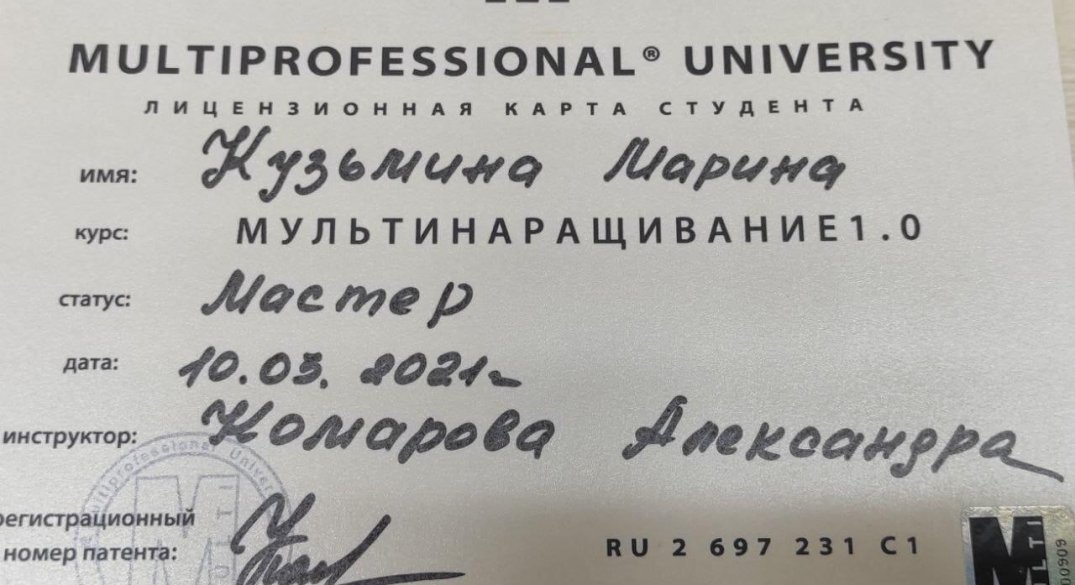 MULTIPROFESSIONAL® UNIVERSITY
ЛИЦЕНЗИОННАЯ КАРТА СТУДЕНТА
имя: Кузьмина Марина
курс: МУЛЬТИНАРАЩИВАНИЕ1.0
статус: Мастер
дата: 10.03.2021
инструктор: Комарова Александра
Multiprofessional Univer
регистрационный
номер патента: RU 2 697 231 C1
M